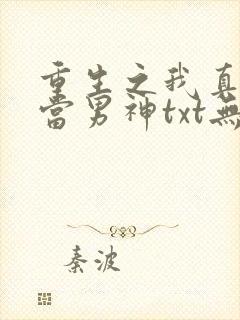 重生之我真
當男神txt無
秦波